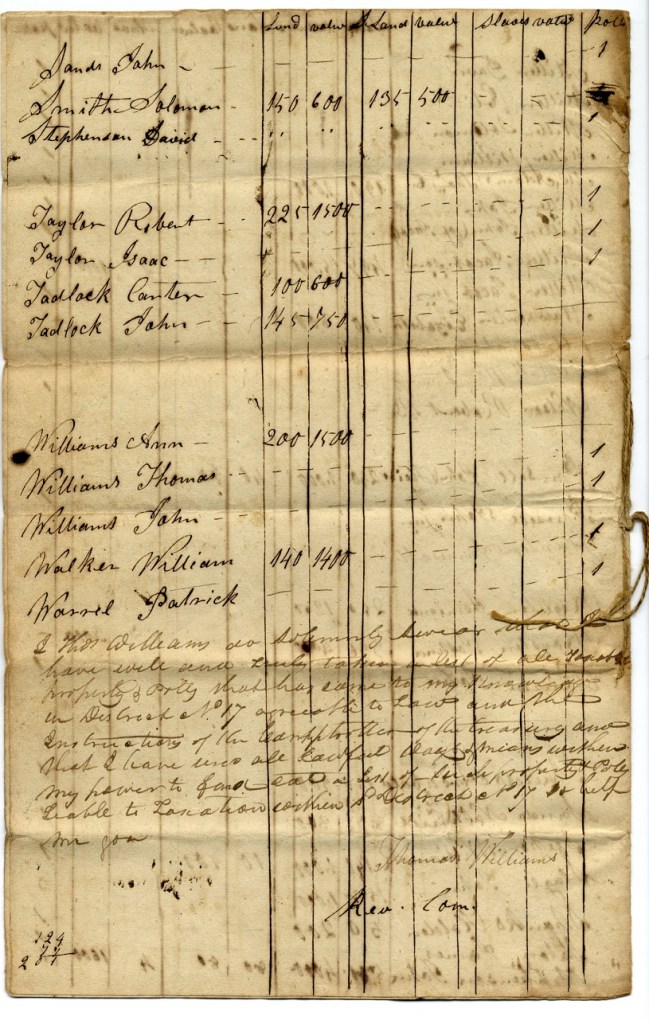 Land value S Land value Slaves value Poll
Sands John - - 1
Smith Solomon - 150 600 135 500
Stephenson David - - 1
Taylor Robert - - 225 1500 1
Taylor Isaac - - 1
Tadlock Carter - - 100 600 1
Tadlock John - - 145 750
Williams Ann - 200 1500
Williams Thomas - - 1
Williams John - 1
Walker William 140 1400 1
Warrel Patrick 1
I Thos Williams do Solemnly Swear that I
have well and truly taken a list of all Taxable
property & Polls that has came to my Knowledge
in District No. 17 agreeable to Law and the
Instructions of the Comptroller of the treasury and
that I have used all lawful ways & means within
my power to find out a list of such property & Polls
Liable to Taxation within Sd District No 17 So help
me god
Thomas Williams
Rev. Com.
124